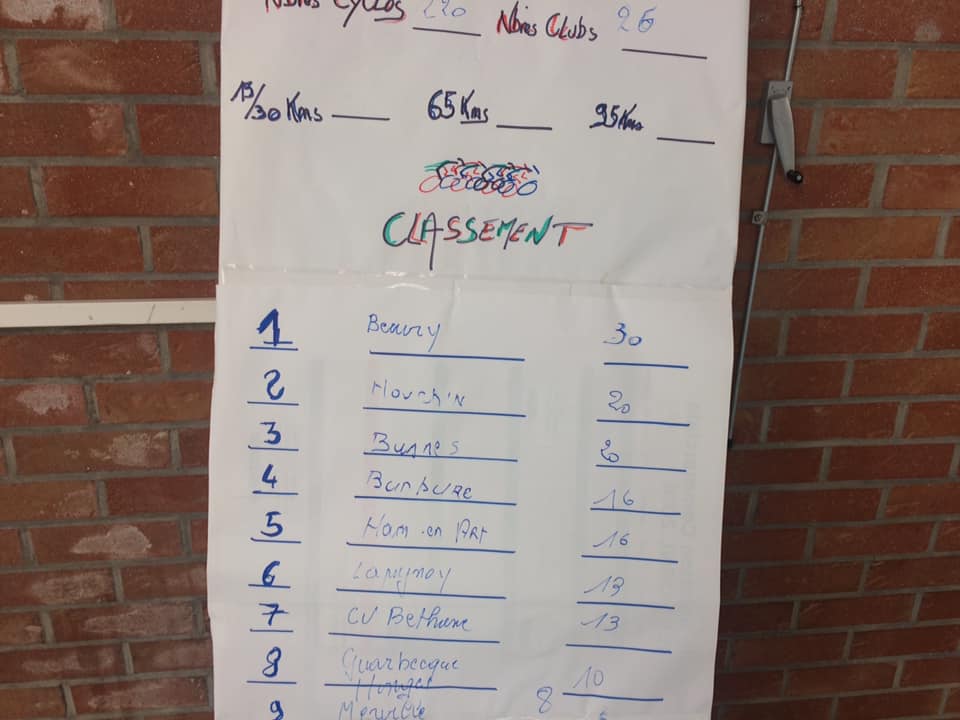 Nbres Cyclos 220 Nbres Clubs 26
15/30 Kms 65 Kms 95 Kms
CLASSEMENT
1 Beuvry 30
2 Houchin 20
3 Busnes 20
4 Burbure 16
5 Ham en Art 16
6 Lapugnoy 13
7 CV Bethune 13
8 Guarbecque 10
8
9 Merville